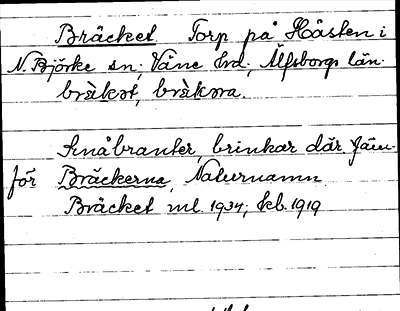 Bräcket Torp på Håsten i
N. Björke sn; Väne hd; Älfsborgs län.
bräkət, bräkɷra.
Småbranter, brinkar där. Jäm-
för Bräckerna, Naturnamn.
Bräcket ml. 1934; kb. 1919